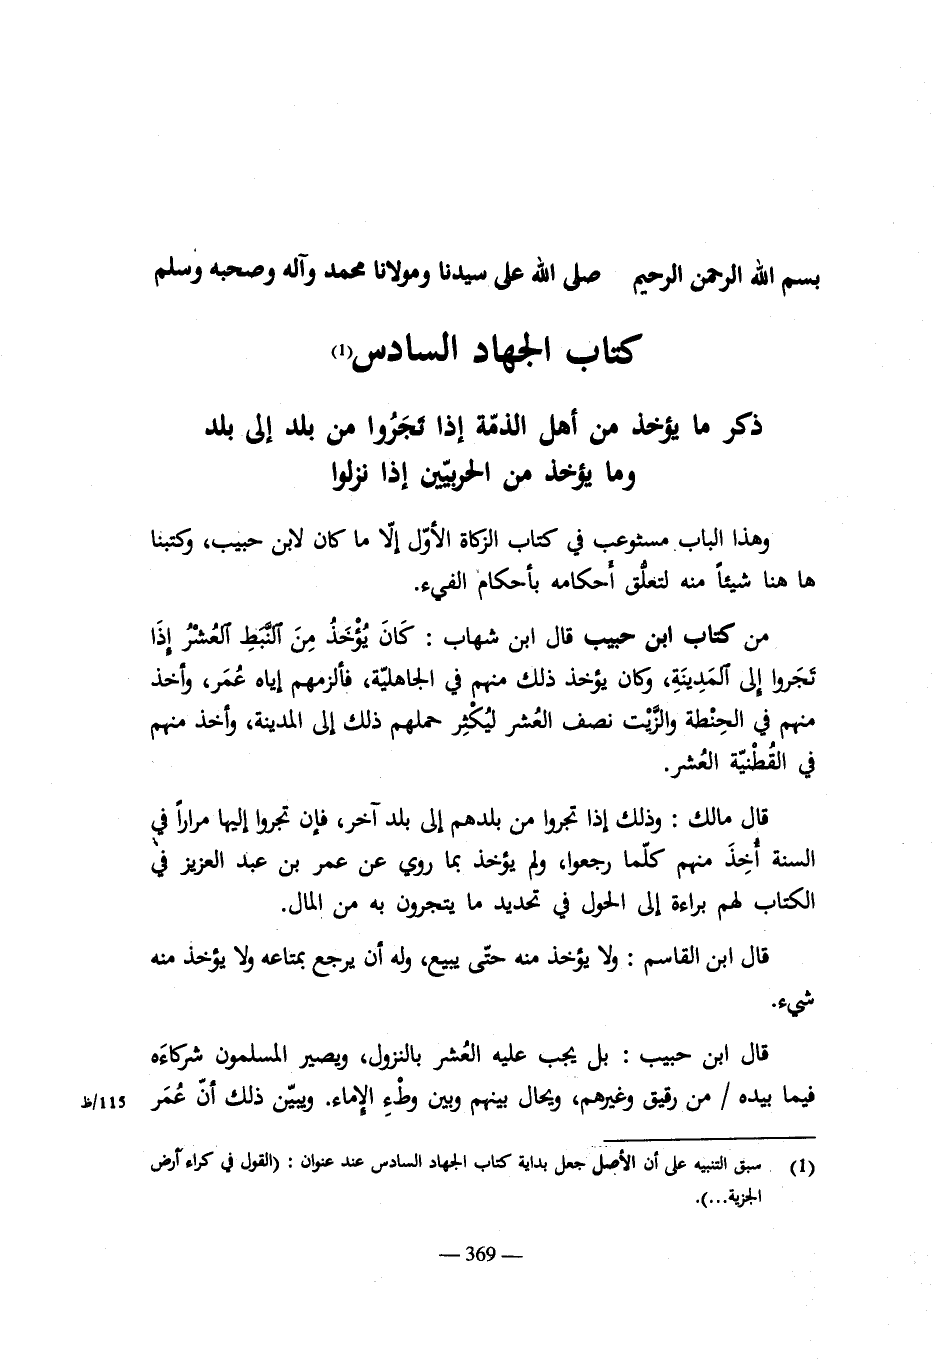 بسم الله الرحمن الرحيم صلى الله على سيدنا ومولانا محمد وآله وصحبه وسلم
كتاب الجهاد السادس(1)
ذكر ما يؤخذ من أهل الذمّة إذا تَجَرُوا من بلد إلى بلد
وما يؤخذ من الحربيّين إذا نزلوا
وهذا الباب مستوعب في كتاب الزكاة الأوّل إلّا ما كان لابن حبيب، وكتبنا
ها هنا شيئاً منه لتعلُّق أحكامه بأحكام الفيء.
من كتاب ابن حبيب قال ابن شهاب : كَانَ يُؤْخَذُ مِنَ ٱلنَّبَطِ ٱلعُشْرُ إِذَا
تَجَروا إِلى ٱلمَدِينَةِ، وكان يؤخذ ذلك منهم في الجاهليّة، فألزمهم إياه عُمَر، وأخذ
منهم في الحِنْطة والزَّيْت نصف العُشر ليُكْثِر حملهم ذلك إلى المدينة، وأخذ منهم
في القُطْنيّة العُشر.
قال مالك : وذلك إذا تجروا من بلدهم إلى بلد آخر، فإن تجروا إليها مراراً في
السنة أُخِذَ منهم كلّما رجعوا، ولم يؤخذ بما روي عن عمر بن عبد العزيز في
الكتاب لهم براءة إلى الحول في تحديد ما يتجرون به من المال.
قال ابن القاسم : ولا يؤخذ منه حتّى يبيع، وله أن يرجع بمتاعه ولا يؤخذ منه
شيء.
قال ابن حبيب : بل يجب عليه العُشر بالنزول، ويصير المسلمون شركاءَه
فيما بيده / من رقيق وغيرهم، ويحال بينهم وبين وطْءِ الإِماء. ويبيّن ذلك أنّ عُمَر 115/ظ
(1) سبق التنبيه على أن الأصل جعل بداية كتاب الجهاد السادس عند عنوان : (القول في كراء أرض
الجزية...).
— 369 —